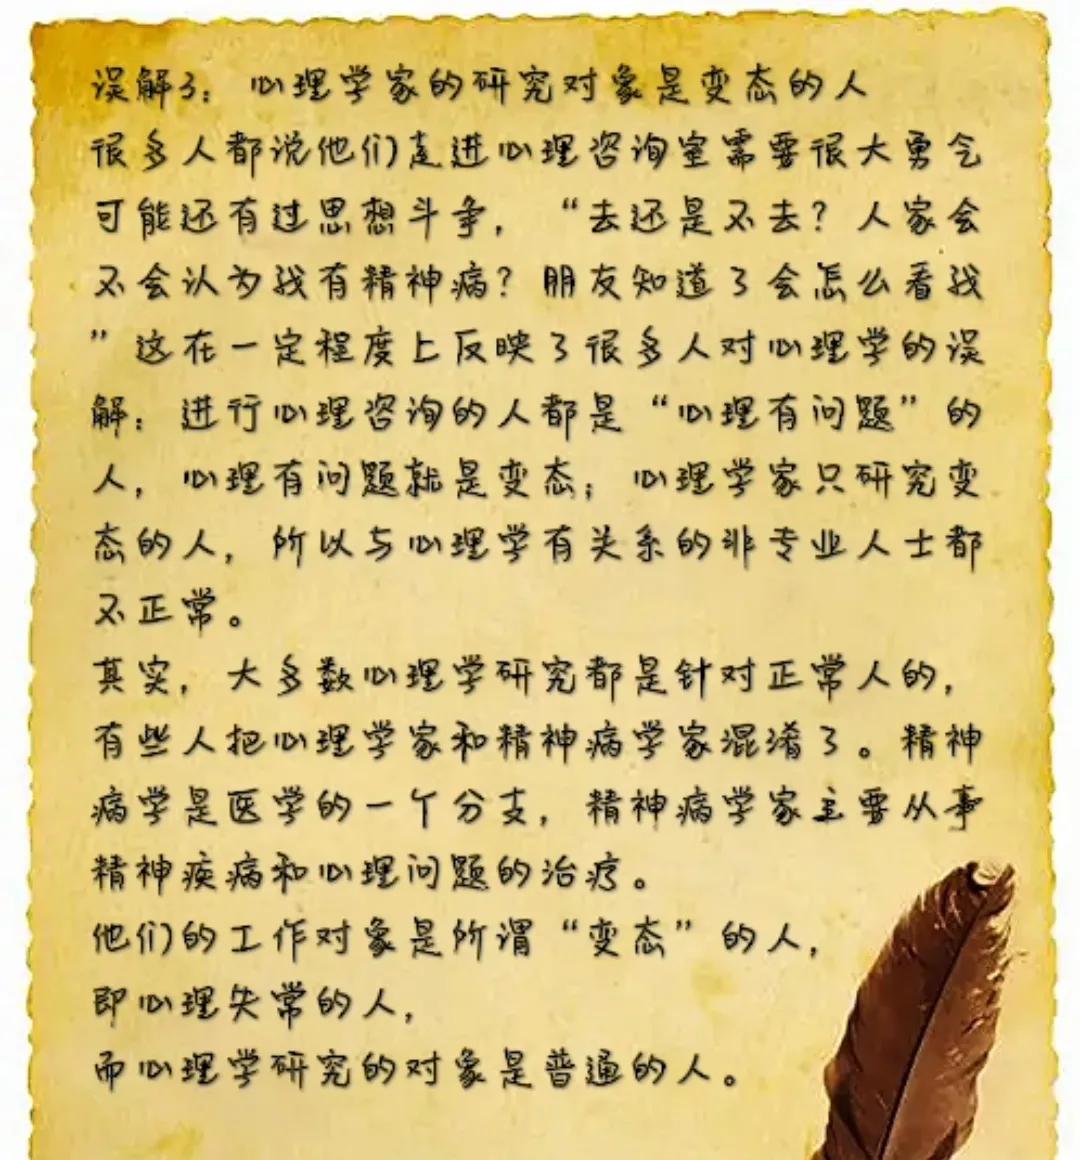 误解3：心理学家的研究对象是变态的人
很多人都说他们走进心理咨询室需要很大勇气
可能还有过思想斗争，“去还是不去？人家会
不会认为我有精神病？朋友知道了会怎么看我
”这在一定程度上反映了很多人对心理学的误
解：进行心理咨询的人都是“心理有问题”的
人，心理有问题就是变态；心理学家只研究变
态的人，所以与心理学有关系的非专业人士都
不正常。
其实，大多数心理学研究都是针对正常人的，
有些人把心理学家和精神病学家混淆了。精神
病学是医学的一个分支，精神病学家主要从事
精神疾病和心理问题的治疗。
他们的工作对象是所谓“变态”的人，
即心理失常的人，
而心理学研究的对象是普通的人。